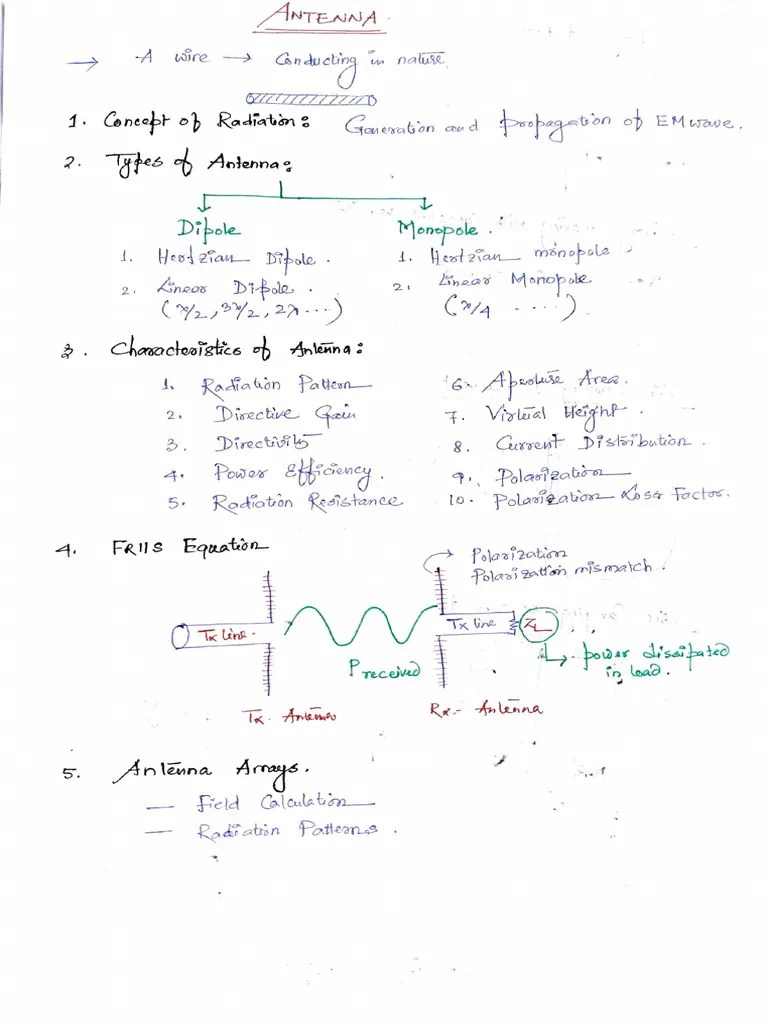 ANTENNA
→ A wire → Conducting in nature
1. Concept of Radiation: Generation and Propagation of EM wave.
2. Types of Antenna:
Dipole
1. Hertzian Dipole.
2. Linear Dipole.
(λ/2, 3λ/2, 2λ ...)
Monopole.
1. Hertzian monopole
2. Linear Monopole
(λ/4 ....)
3. Characteristics of Antenna:
1. Radiation Pattern
2. Directive Gain
3. Directivity
4. Power Efficiency.
5. Radiation Resistance
6. Aperture Area.
7. Virtual Height.
8. Current Distribution.
9. Polarization
10. Polarization Loss Factor.
4. FRIIS Equation
Polarization
Polarization mismatch.
Tx line.
Tx line
ZL
P received
power dissipated
in load.
Tx. Antenna
Rx.- Antenna
5. Antenna Arrays.
— Field Calculation
— Radiation Patterns.